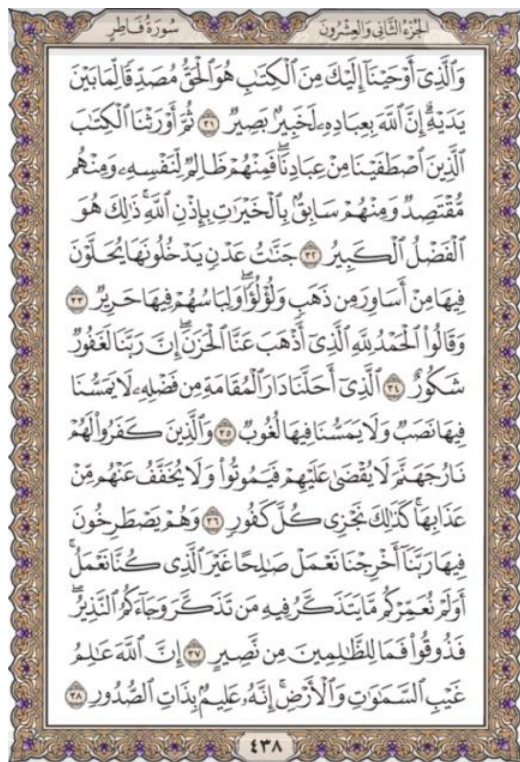 الجزء الثاني والعشرون سورة فاطر
وَالَّذِىٓ أَوْحَيْنَآ إِلَيْكَ مِنَ ٱلْكِتَٰبِ هُوَ ٱلْحَقُّ مُصَدِّقًا لِّمَا بَيْنَ
يَدَيْهِ ۗ إِنَّ ٱللَّهَ بِعِبَادِهِۦ لَخَبِيرٌۢ بَصِيرٌ ٣١ ثُمَّ أَوْرَثْنَا ٱلْكِتَٰبَ
ٱلَّذِينَ ٱصْطَفَيْنَا مِنْ عِبَادِنَا ۖ فَمِنْهُمْ ظَالِمٌ لِّنَفْسِهِۦ وَمِنْهُم
مُّقْتَصِدٌ وَمِنْهُمْ سَابِقٌۢ بِٱلْخَيْرَٰتِ بِإِذْنِ ٱللَّهِ ۚ ذَٰلِكَ هُوَ
ٱلْفَضْلُ ٱلْكَبِيرُ ٣٢ جَنَّٰتُ عَدْنٍ يَدْخُلُونَهَا يُحَلَّوْنَ
فِيهَا مِنْ أَسَاوِرَ مِن ذَهَبٍ وَلُؤْلُؤًا ۖ وَلِبَاسُهُمْ فِيهَا حَرِيرٌ ٣٣
وَقَالُوا۟ ٱلْحَمْدُ لِلَّهِ ٱلَّذِىٓ أَذْهَبَ عَنَّا ٱلْحَزَنَ ۖ إِنَّ رَبَّنَا لَغَفُورٌ
شَكُورٌ ٣٤ ٱلَّذِىٓ أَحَلَّنَا دَارَ ٱلْمُقَامَةِ مِن فَضْلِهِۦ لَا يَمَسُّنَا
فِيهَا نَصَبٌ وَلَا يَمَسُّنَا فِيهَا لُغُوبٌ ٣٥ وَٱلَّذِينَ كَفَرُوا۟ لَهُمْ
نَارُ جَهَنَّمَ لَا يُقْضَىٰ عَلَيْهِمْ فَيَمُوتُوا۟ وَلَا يُخَفَّفُ عَنْهُم مِّنْ
عَذَابِهَا ۚ كَذَٰلِكَ نَجْزِى كُلَّ كَفُورٍ ٣٦ وَهُمْ يَصْطَرِخُونَ
فِيهَا رَبَّنَآ أَخْرِجْنَا نَعْمَلْ صَٰلِحًا غَيْرَ ٱلَّذِى كُنَّا نَعْمَلُ ۚ
أَوَلَمْ نُعَمِّرْكُم مَّا يَتَذَكَّرُ فِيهِ مَن تَذَكَّرَ وَجَآءَكُمُ ٱلنَّذِيرُ ۖ
فَذُوقُوا۟ فَمَا لِلظَّٰلِمِينَ مِن نَّصِيرٍ ٣٧ إِنَّ ٱللَّهَ عَٰلِمُ
غَيْبِ ٱلسَّمَٰوَٰتِ وَٱلْأَرْضِ ۚ إِنَّهُۥ عَلِيمٌۢ بِذَاتِ ٱلصُّدُورِ ٣٨
٤٣٨